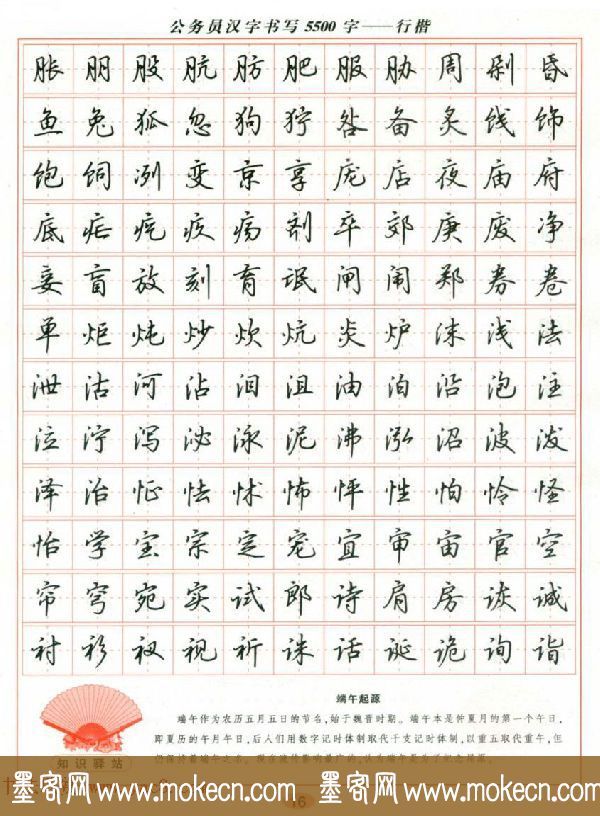 公务员汉字书写5500字——行楷
胀 朋 股 肮 肪 肥 服 胁 周 剁 昏
鱼 兔 狐 忽 狗 狞 咎 备 炙 饯 饰
饱 饲 冽 变 京 享 庞 店 夜 庙 府
底 疟 疙 疚 疡 剂 卒 郊 庚 废 净
妾 盲 放 刻 育 氓 闸 闹 郑 券 卷
单 炬 炖 炒 炊 炕 炎 炉 沫 浅 法
泄 沽 河 沾 泪 沮 油 泊 沿 泡 注
泣 泞 泻 泌 泳 泥 沸 泓 沼 波 泼
泽 治 怔 怯 怵 怖 怦 性 怕 怜 怪
怡 学 宝 宗 定 宠 宜 审 宙 官 空
帘 穹 宛 实 试 郎 诗 肩 房 诙 诚
衬 衫 衩 视 祈 诛 话 诞 诡 询 诣
端午起源
端午作为农历五月五日的节名,始于魏晋时期。端午本是仲夏月的第一个午日,
即夏历的午月午日,后人们用数字记时体制取代干支记时体制,以重五取代重午,但
仍保持着端午之名。现在流传影响最广的,认为端午是为了纪念屈原。
知识驿站
16
墨客网 www.mokecn.com 墨客网 www.mokecn.com